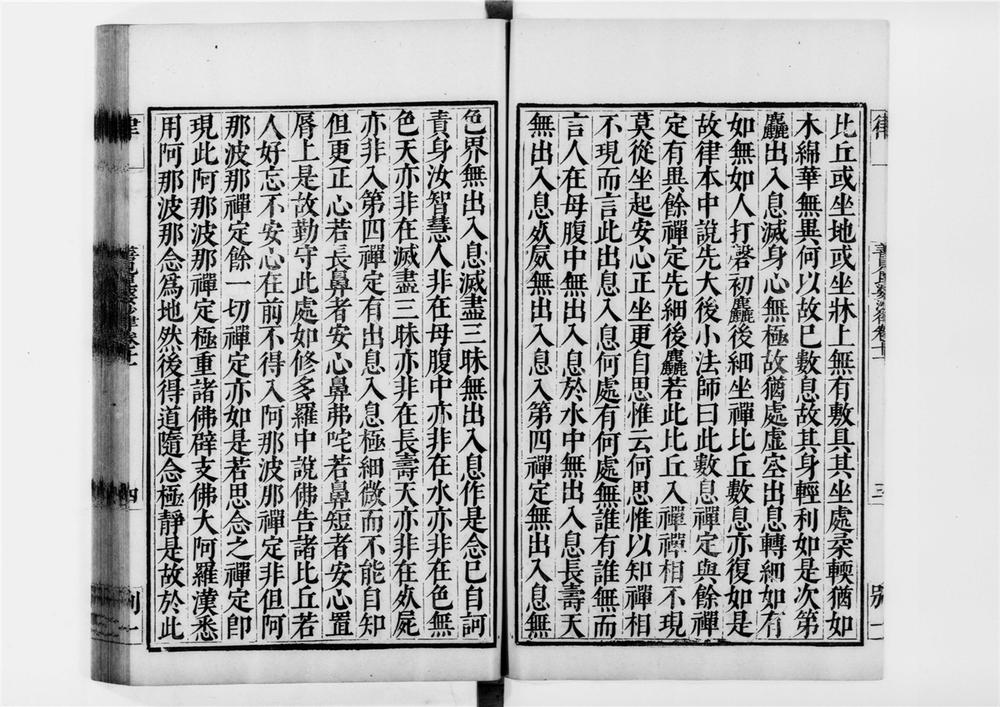 比丘或坐地或坐牀上無有敷具其坐處柔輭猶如
木綿華無異何以故已數息故其身輕利如是次第
麤出入息滅身心無極故猶處虛空出息轉細如有
如無如人打磬初麤後細坐禪比丘數息亦復如是
故律本中說先大後小法師曰此數息禪定與餘禪
定有異餘禪定先細後麤若此比丘入禪禪相不現
莫從坐起安心正坐更自思惟云何思惟以知禪相
不現而言此出息入息何處有何處無誰有誰無而
言人在母腹中無出入息於水中無出入息長壽天
無出入息死屍無出入息入第四禪定無出入息無
律一
三
色界無出入息滅盡三昧無出入息作是念已自訶
責身汝智慧人非在母腹中亦非在水亦非在色無
色天亦非在滅盡三昧亦非在長壽天亦非在死屍
亦非入第四禪定有出息入息極細微而不能自知
但更正心若長鼻者安心鼻弗咤若鼻短者安心置
脣上是故勤守此處如修多羅中說佛告諸比丘若
人好忘不安心在前不得入阿那波那禪定非但阿
那波那禪定餘一切禪定亦如是若思念之禪定卽
現此阿那波那禪定極重諸佛辟支佛大阿羅漢悉
用阿那波那念爲地然後得道隨念極靜是故於此
四